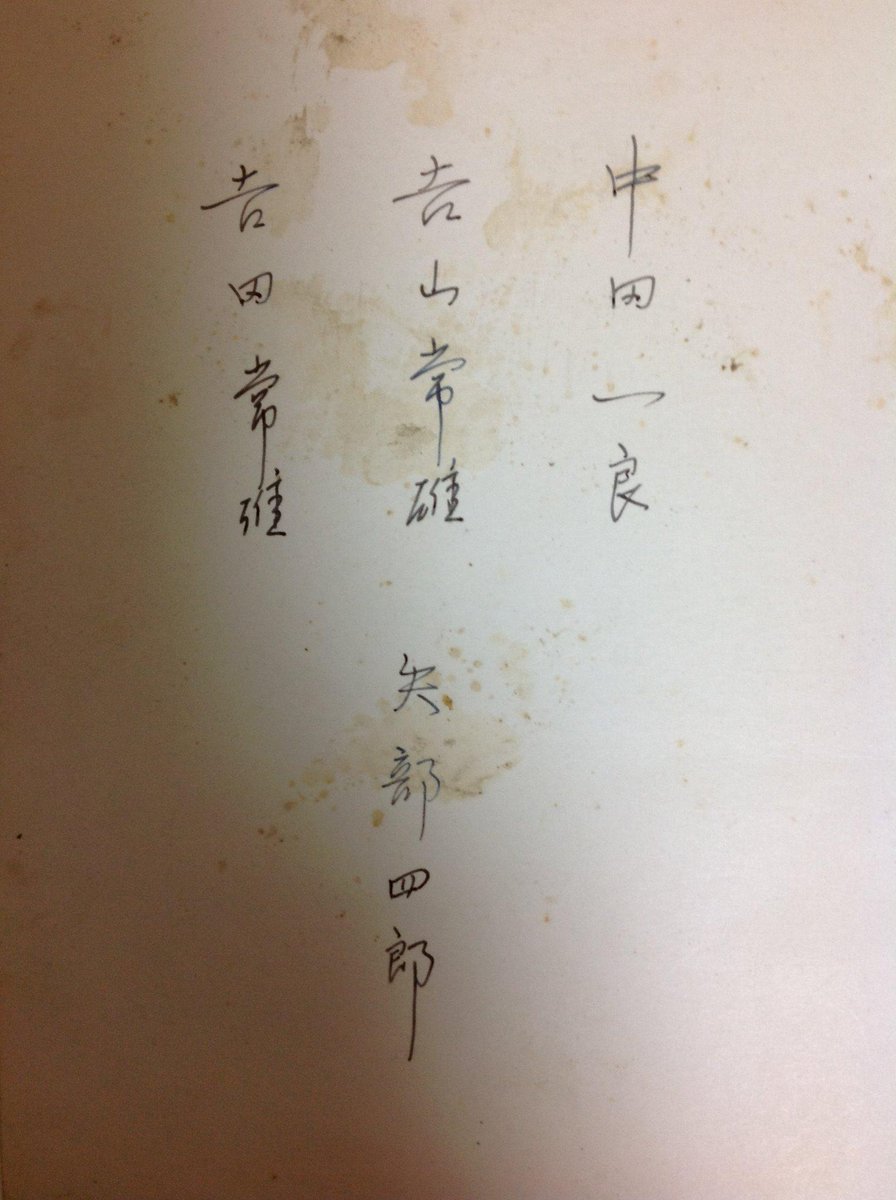 中田一良
吉山常雄
吉田常雄
矢部四郎